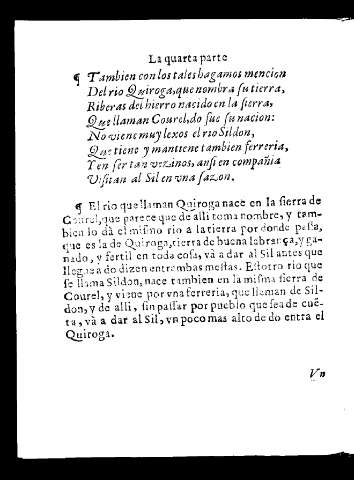 La quarta parte
¶ Tambien con los tales hagamos mencion
Del rio Quiroga, que nombra su tierra,
Riberas del hierro nacido en la sierra,
Que llaman Courel, do fue su nacion:
No viene muy lexos el rio Sildon,
Que tiene y mantiene tambien ferreria,
Y en ser tan vezinos, ansi en compañia
Visitan al Sil en vna sazon.
¶ El rio que llaman Quiroga nace en la sierra de
Courel, que parece que de alli toma nombre, y tam-
bien lo dà el mismo rio a la tierra por donde passa,
que es la de Quiroga, tierra de buena labrança, y ga-
nado, y fertil en toda cosa, và a dar al Sil antes que
llegue a do dizen entrambas mestas. Estotro rio que
se llama Sildon, nace tambien en la misma sierra de
Courel, y viene por vna ferreria, que llaman de Sil-
don, y de alli, sin passar por pueblo que sea de cuẽ-
ta, và a dar al Sil, vn poco mas alto de do entra el
Quiroga.
Vn